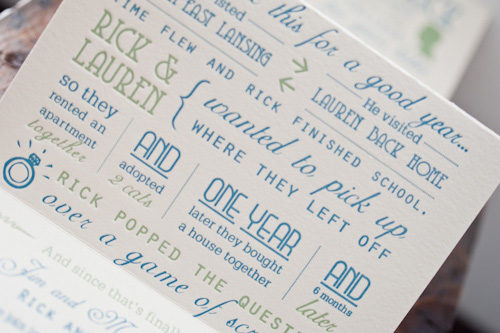 this for a good year...
visited
EAST LANSING
He visited
LAUREN BACK HOME
TIME FLEW AND RICK FINISHED SCHOOL.
RICK &
LAUREN
{ wanted to pick up
WHERE THEY LEFT OFF
so they
rented an
apartment
together
AND
adopted
2 cats
ONE YEAR
later they bought
a house together
AND
6 months
later
RICK POPPED THE
over a game of
And since that's finally
Jim and
RICK